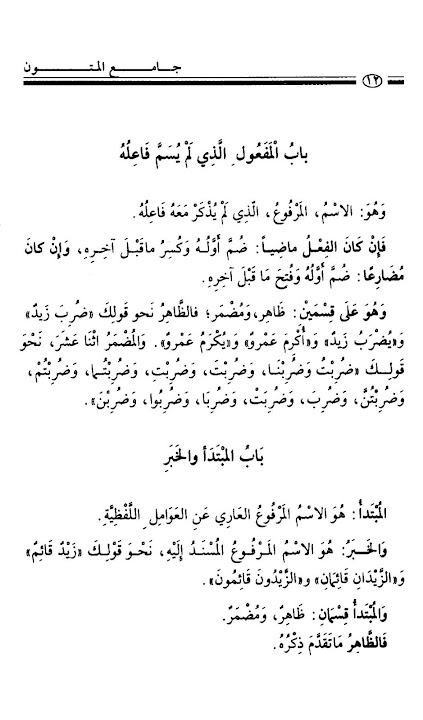 جامع المتون
١٢
بابُ الْمَفْعُولِ الَّذِي لَمْ يُسَمَّ فَاعِلُهُ
وَهُوَ: الاسْمُ، المَرْفُوعُ، الَّذِي لَمْ يُذْكَرْ مَعَهُ فَاعِلُهُ.
فَإِن كَانَ الفِعْلُ ماضِياً: ضُمَّ أَوَّلُهُ وَكُسِرَ ماقَبْلَ آخِرِهِ، وَإِنْ كانَ
مُضَارِعًا: ضُمَّ أَوَّلُهُ وَفُتِحَ مَا قَبْلَ آخِرِهِ.
وَهُوَ عَلَى قِسْمَيْنِ: ظاهِرٍ، وَمُضْمَرٍ؛ فالظَّاهِرُ نَحو قَولِكَ «ضُرِبَ زَيدٌ»
وَ«يُضْرَبُ زَيدٌ» وَ«أُكْرِمَ عَمْروٌ» وَ«يُكْرَمُ عَمْروٌ». وَالْمُضْمَرُ اثْنَا عَشَرَ، نَحْوَ
قَولِكَ «ضُرِبْتُ وَضُرِبْنَا، وَضُرِبْتَ، وَضُرِبْتِ، وَضُرِبْتُما، وَضُرِبْتُمْ،
وَضُرِبْتُنَّ، وَضُرِبَ، وَضُرِبَتْ، وَضُرِبَا، وَضُرِبوا، وَضُرِبْنَ».
بَابُ المُبْتَدأ والخَبَرِ
المُبْتَدأُ: هُوَ الاسْمُ المَرْفُوعُ العَارِي عَنِ العَوَامِلِ اللَّفْظِيَّةِ.
وَالخَبَرُ: هُوَ الاسْمُ المَرْفُوعُ المُسْنَدُ إِلَيْهِ، نَحْوَ قَوْلِكَ «زَيْدٌ قَائِمٌ»
وَ«الزَّيْدَانِ قَائِمَانِ» و«الزَّيْدُونَ قَائِمُونَ».
وَالْمُبْتَدأُ قِسْمَانِ: ظَاهِرٌ، وَمُضْمَرٌ.
فَالظَّاهِرُ مَاتَقَدَّمَ ذِكْرُهُ.